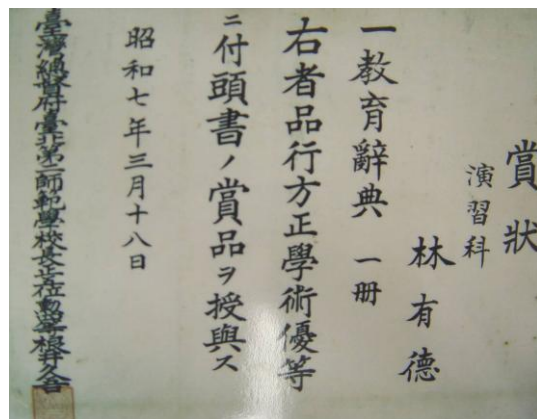 賞狀
演習科
林有德
一教育辭典 一册
右者品行方正學術優等
ニ付頭書ノ賞品ヲ授與ス
昭和七年三月十八日
臺灣總督府臺北第二師範學校長正五位勳四等